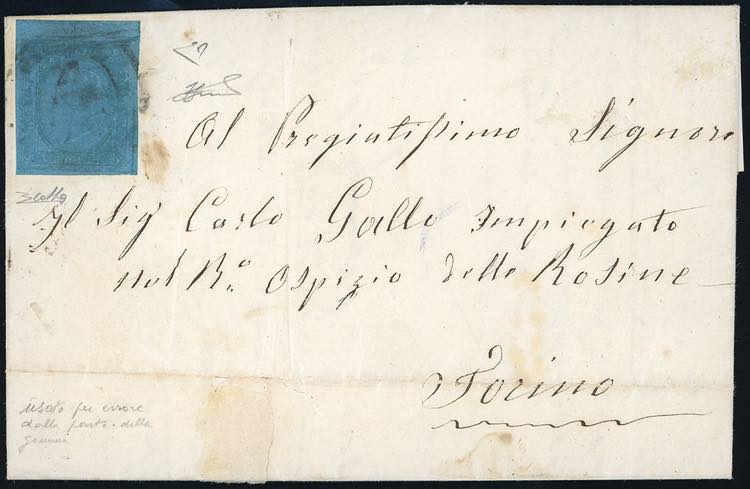 Al Pregiatissimo Signore
Il Sig Carlo Gallo Impiegato
nel R.o Ospizio delle Rosine
Torino
usato per errore
dalla parte della
gomma